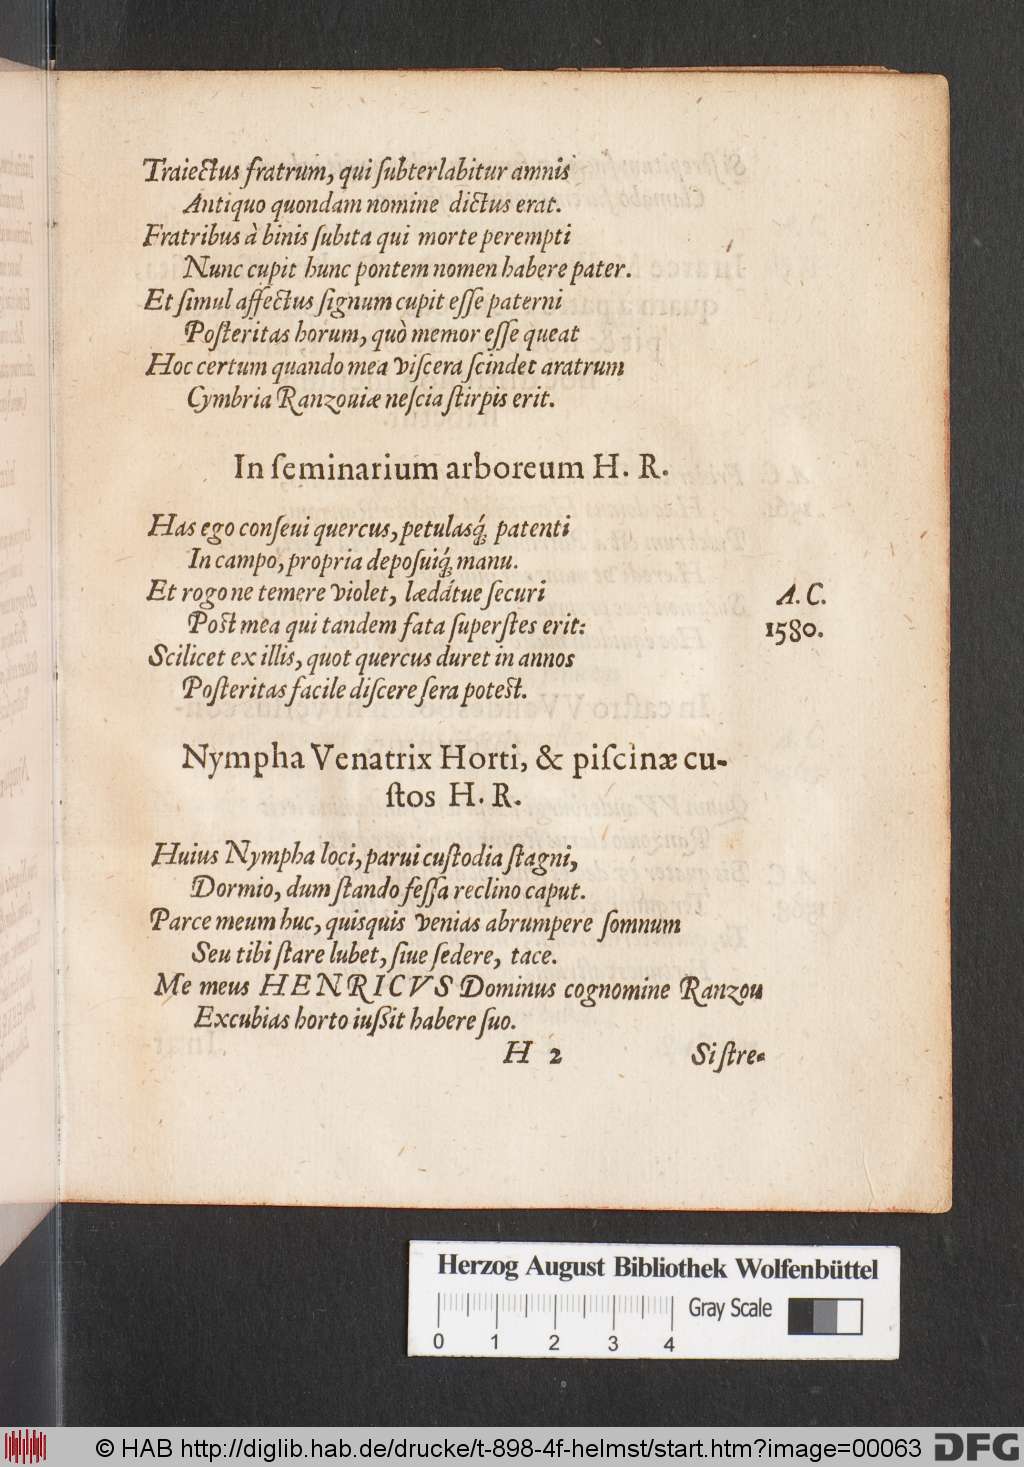 Traiectus fratrum, qui ſubterlabitur amnis
Antiquo quondam nomine dictus erat.
Fratribus à binis ſubita qui morte perempti
Nunc cupit hunc pontem nomen habere pater.
Et ſimul affectus ſignum cupit eſſe paterni
Poſteritas horum, quò memor eſſe queat
Hoc certum quando mea viſcera ſcindet aratrum
Cymbria Ranzouiæ neſcia ſtirpis erit.
In ſeminarium arboreum H. R.
Has ego conſeui quercus, petulasq́; patenti
In campo, propria depoſuiq́; manu.
Et rogo ne temere violet, lædátue ſecuri
A. C.
Poſt mea qui tandem fata ſuperſtes erit:
1580.
Scilicet ex illis, quot quercus duret in annos
Poſteritas facile diſcere ſera poteſt.
Nympha Venatrix Horti, & piſcinæ cu-
ſtos H. R.
Huius Nympha loci, parui cuſtodia ſtagni,
Dormio, dum ſtando feſſa reclino caput.
Parce meum huc, quisquis venias abrumpere ſomnum
Seu tibi ſtare lubet, ſiue ſedere, tace.
Me meus HENRICVS Dominus cognomine Ranzou
Excubias horto iußit habere ſuo.
H 2
Si ſtre-
Herzog August Bibliothek Wolfenbüttel
Gray Scale
0 1 2 3 4
© HAB http://diglib.hab.de/drucke/t-898-4f-helmst/start.htm?image=00063
DFG